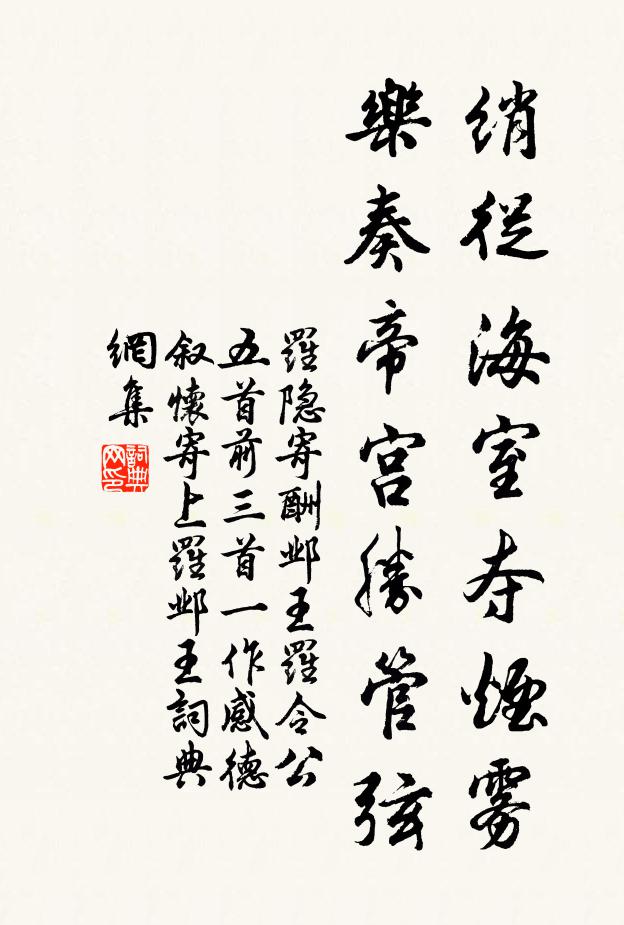 綃從海室夺煙雾
樂奏帝宮勝管弦
羅隐寄酬邺王羅令公
五首前三首一作感德
叙懷寄上羅邺王詞典
網集
詞典
网印